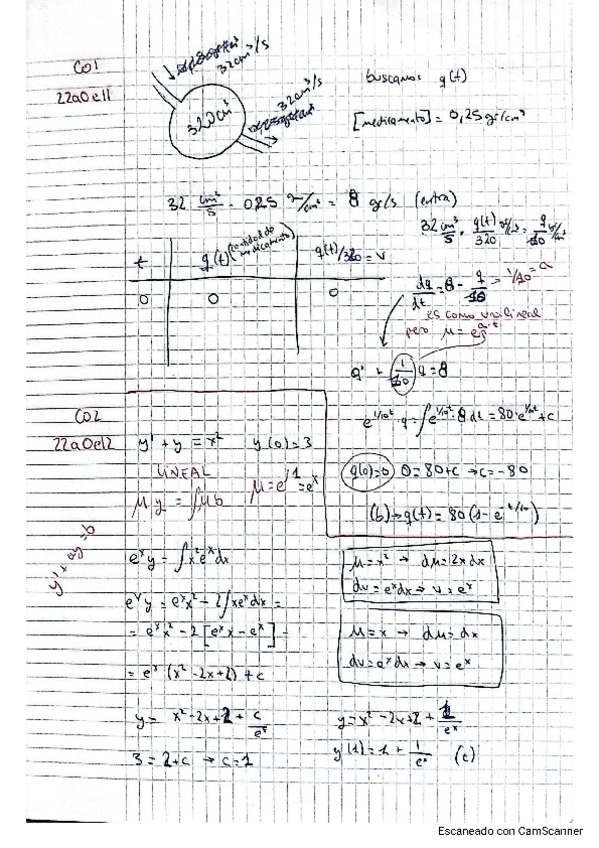 C01
22a0e11
32cm³/s
320cm³
32cm³/s
buscamos q(t)
[medicamento] = 0,25gr/cm³
32 cm³/s · 0,25 gr/cm³ = 8 gr/s (entra)
32 cm³/s · q(t)/320
t
q(t) (cantidad de medicamento)
q(t)/320 = v
0 0 0
dq/dt = 8 - q/10 → 1/10 = a
es como una lineal
pero μ = e^(a·t)
q' + 1/10 q = 8
e^(1/10 t) · q = ∫e^(1/10 t) · 8 dt = 80·e^(1/10 t) + c
q(0)=0 0 = 80+c → c = -80
(b) → q(t) = 80 (1 - e^(-t/10))
C02
22a0e12
y' + y = x² y(0) = 3
LINEAL
μy = ∫μb μ = e^∫1 = e^x
y' + ay = b
e^x y = ∫x² e^x dx
μ = x² → dμ = 2x dx
dv = e^x dx → v = e^x
e^x y = e^x x² - 2∫x e^x dx =
= e^x x² - 2[e^x x - e^x] =
μ = x → dμ = dx
dv = e^x dx → v = e^x
= e^x (x² - 2x + 2) + c
y = x² - 2x + 2 + c/e^x
y = x² - 2x + 2 + 1/e^x
3 = 2 + c → c = 1
y(1) = 1 + 1/e^x (c)
Escaneado con CamScanner